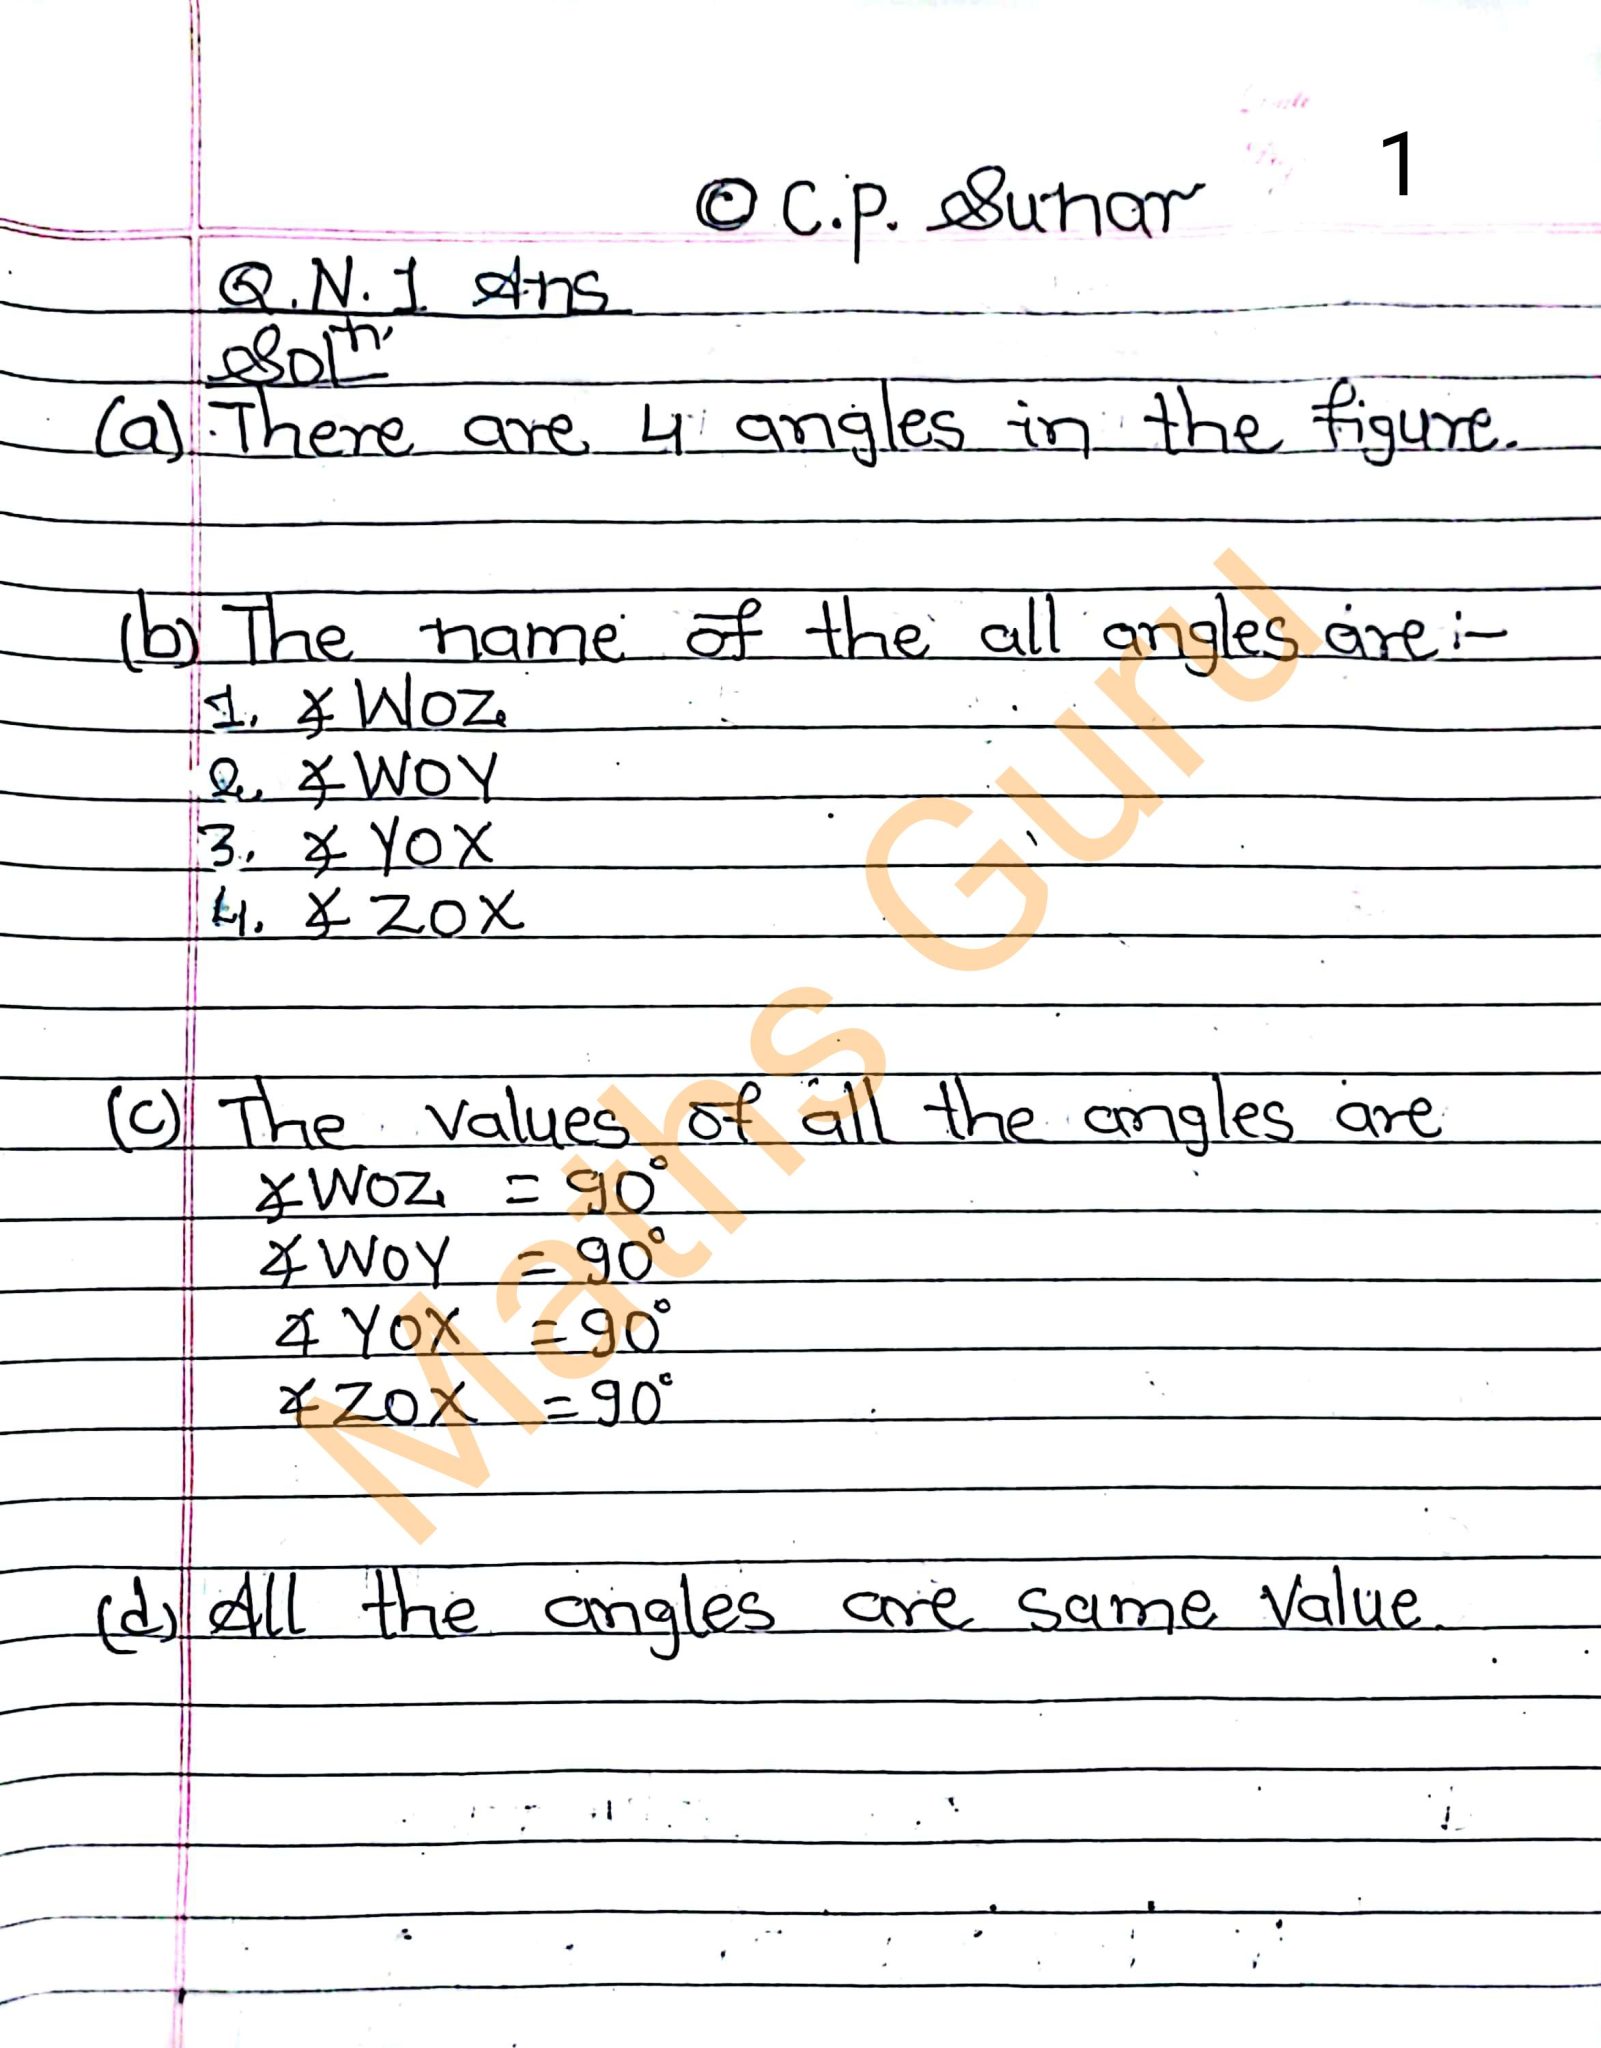 1
© C.P. Sunar
Q.N. 1 Ans
Solⁿ.
(a) There are 4 angles in the figure.
(b) The name of the all angles are:-
1. ∡ WOZ
2. ∡ WOY
3. ∡ YOX
4. ∡ ZOX
(c) The values of all the angles are
∡ WOZ = 90°
∡ WOY = 90°
∡ YOX = 90°
∡ ZOX = 90°
(d) All the angles are same value.
Maths Guru